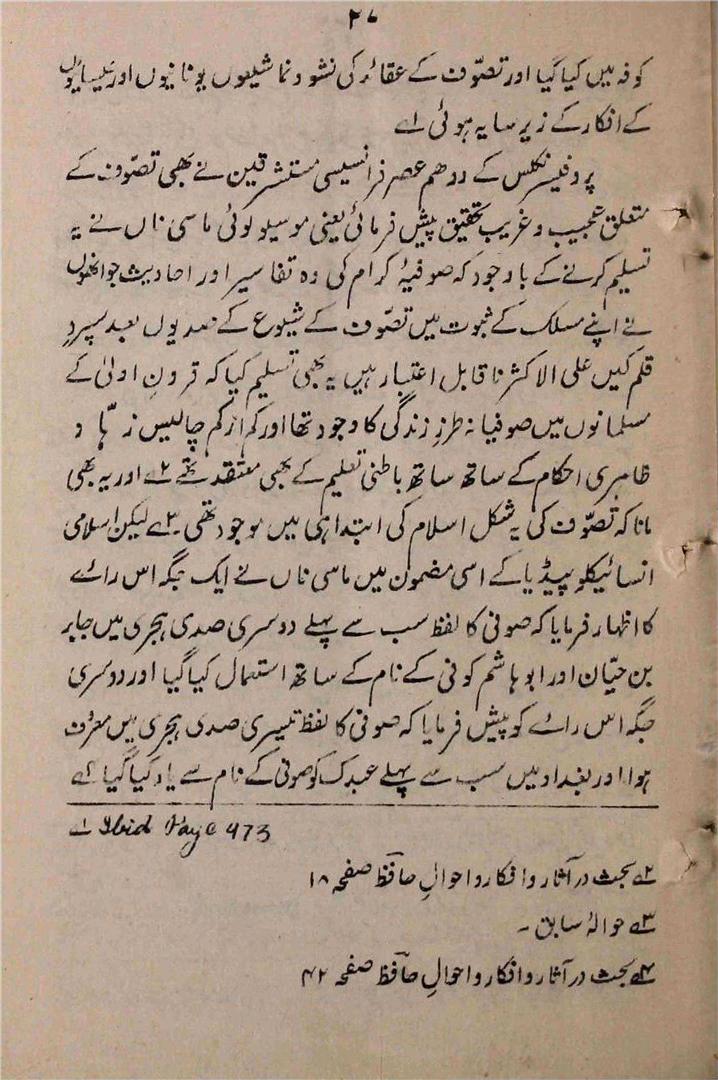 ۲۷
کوفہ میں کیا گیا اور تصوّف کے عقائد کی نشو و نما شیعوں یونانیوں اور عیسائیوں
کے افکار کے زیر سایہ ہوئی ۱ے
پروفیسر نکلسن کے ہم عصر فرانسیسی مستشرقین نے بھی تصوّف کے
متعلق عجیب و غریب تحقیق پیش فرمائی یعنی موسیو لوئی ماسی ناں نے یہ
تسلیم کرنے کے باوجود کہ صوفیۂ کرام کی وہ تفاسیر اور احادیث جو انھوں
نے اپنے مسلک کے ثبوت میں تصوّف کے شیوع کے صدیوں بعد سپردِ
قلم کیں علی الاکثر ناقابل اعتبار ہیں یہ بھی تسلیم کیا کہ قرونِ اولیٰ کے
مسلمانوں میں صوفیانہ طرزِ زندگی کا وجود تھا اور کم از کم چالیس زہّاد
ظاہری احکام کے ساتھ ساتھ باطنی تعلیم کے بھی معتقد تھے ۲ے اور یہ بھی
مانا کہ تصوّف کی یہ شکل اسلام کی ابتدا ہی میں موجود تھی ۳ے لیکن اسلامی
انسائیکلو پیڈیا کے اسی مضمون میں ماسی ناں نے ایک جگہ اس رائے
کا اظہار فرمایا کہ صوفی کا لفظ سب سے پہلے دوسری صدی ہجری میں جابر
بن حیّان اور ابو ہاشم کوفی کے نام کے ساتھ استعمال کیا گیا اور دوسری
جگہ اس رائے کو پیش فرمایا کہ صوفی کا لفظ تیسری صدی ہجری میں معروف
ہوا اور بغداد میں سب سے پہلے عبدک کو صوفی کے نام سے یاد کیا گیا ۴ے
۱ے Ibid Page 473
۲ے بحث در آثار و افکار و احوالِ حافظ صفحہ ۱۸
۳ے حوالۂ سابق ۔
۴ے بحث در آثار و افکار و احوالِ حافظ صفحہ ۴۲